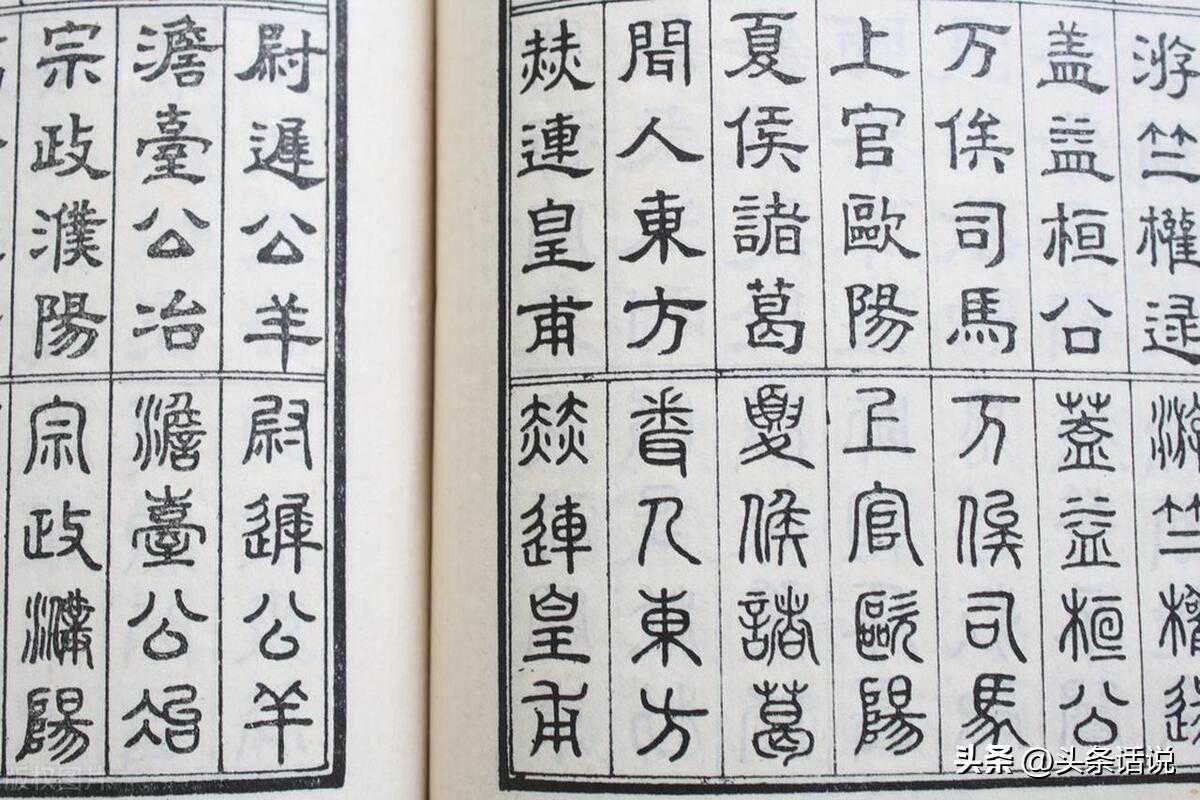 游竺權逯
盖益桓公
万俟司馬
上官歐陽
夏侯諸葛
聞人東方
赫連皇甫
游竺權
蓋益桓公
万俟司馬
上官歐陽
夏侯諸葛
聞人東方
赫連皇甫
尉遲公羊
澹臺公冶
宗政濮陽
尉遲公羊
澹臺公冶
宗政濮陽
头条 @头条话说